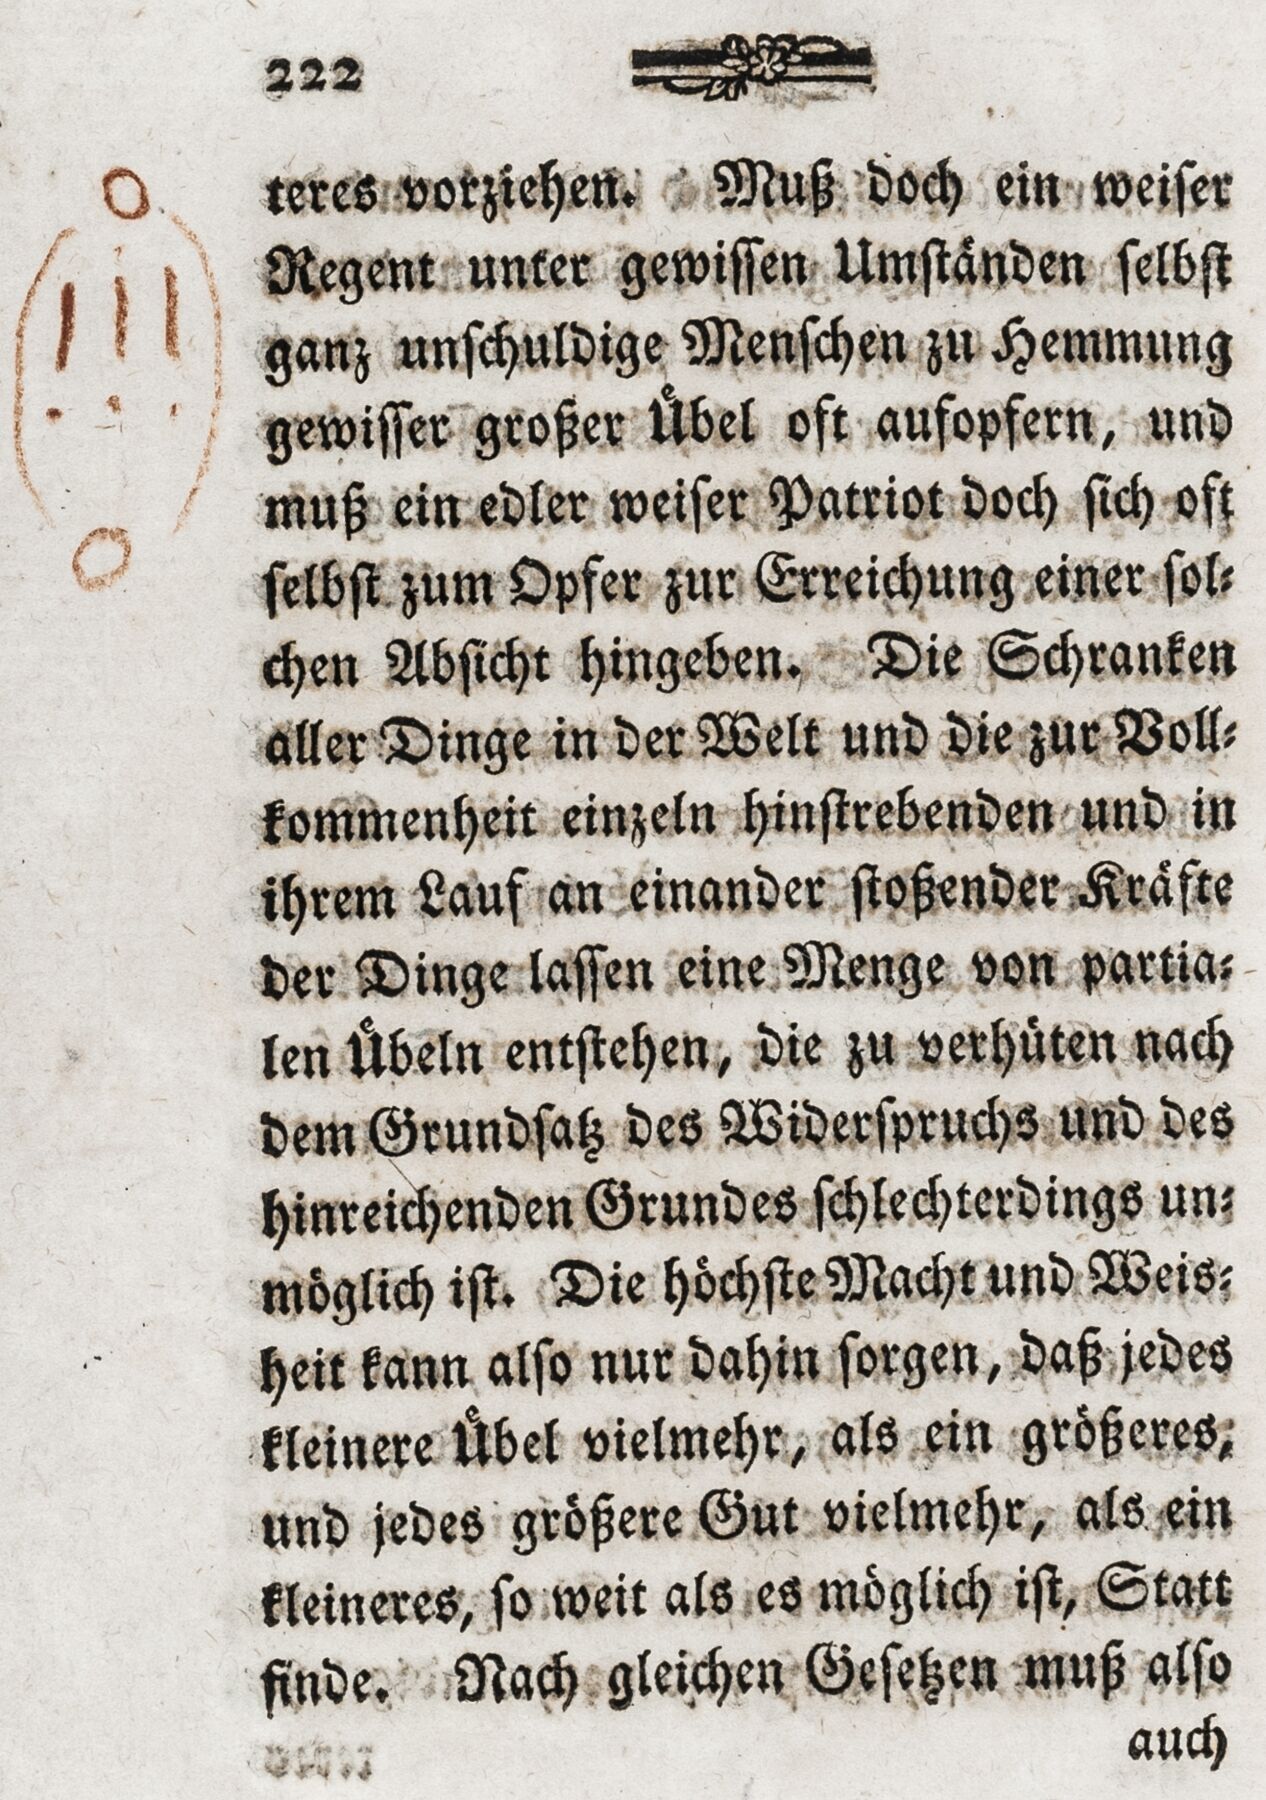 222
teres vorziehen. Muß doch ein weiser
Regent unter gewissen Umständen selbst
ganz unschuldige Menschen zu Hemmung
gewisser großer Uͤbel oft aufopfern, und
muß ein edler weiser Patriot doch sich oft
selbst zum Opfer zur Erreichung einer sol-
chen Absicht hingeben. Die Schranken
aller Dinge in der Welt und die zur Voll-
kommenheit einzeln hinstrebenden und in
ihrem Lauf an einander stoßender Kräfte
der Dinge lassen eine Menge von partia-
len Uͤbeln entstehen, die zu verhüten nach
dem Grundsatz des Widerspruchs und des
hinreichenden Grundes schlechterdings un-
möglich ist. Die höchste Macht und Weis-
heit kann also nur dahin sorgen, daß jedes
kleinere Uͤbel vielmehr, als ein größeres,
und jedes größere Gut vielmehr, als ein
kleineres, so weit als es möglich ist, Statt
finde. Nach gleichen Gesetzen muß also
auch
(!!!)